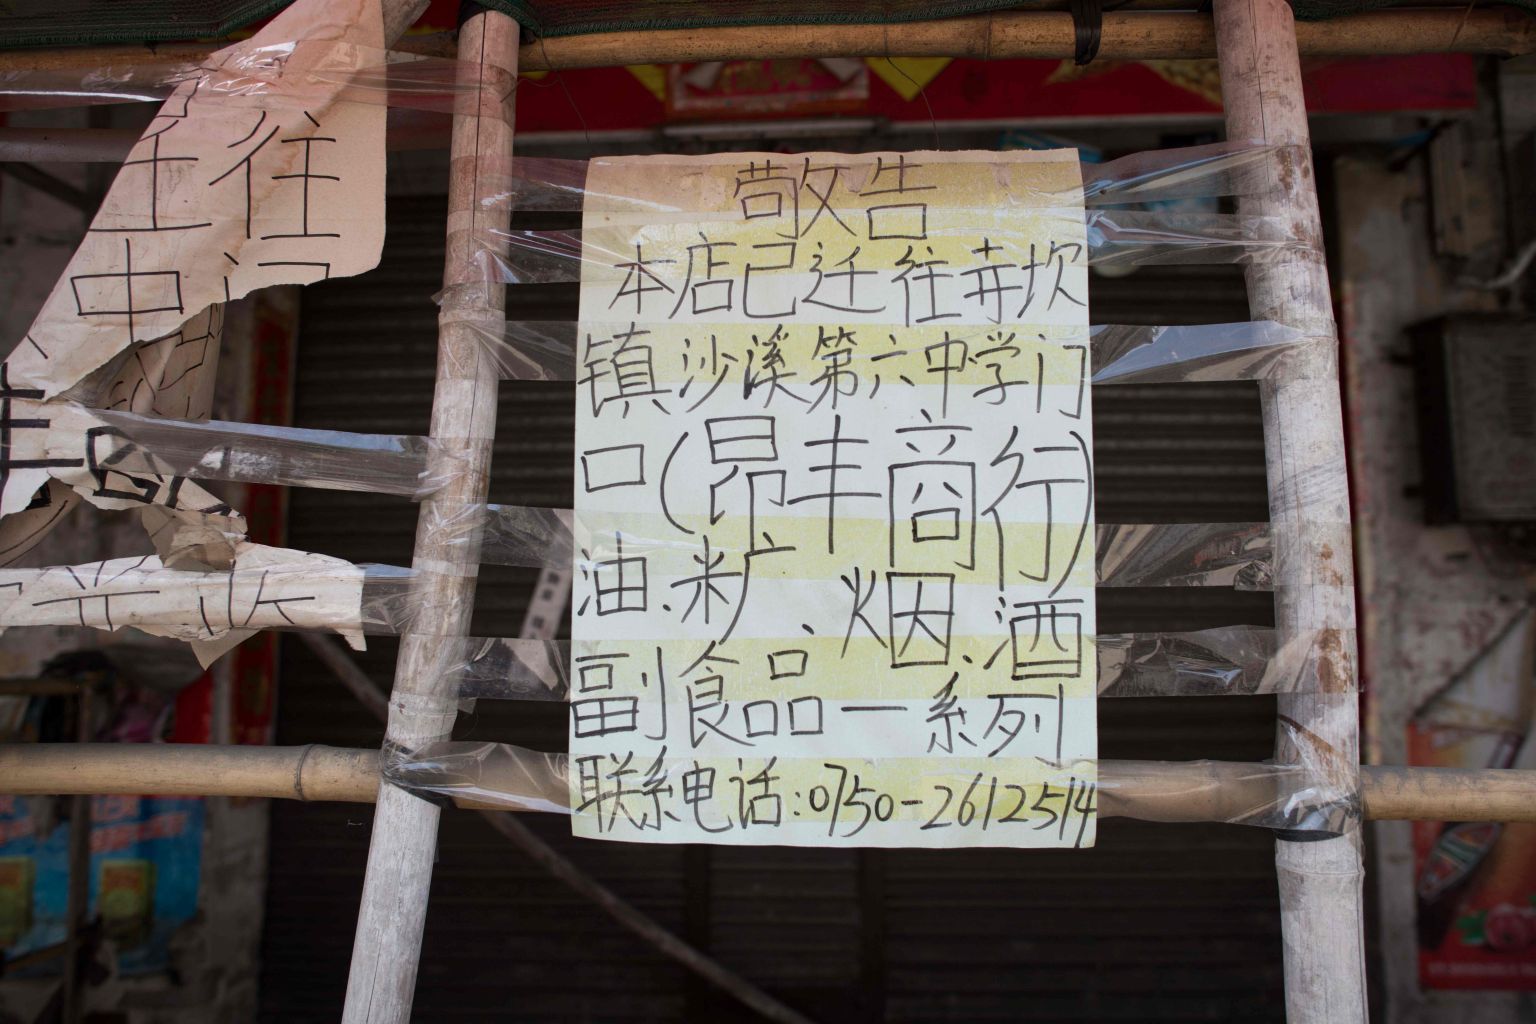 往
中
敬告
本店已迁往寺坎
镇沙溪第六中学门
口(昂丰商行)
油、米厂、烟、酒
副食品一系列
联系电话:0750-2612514